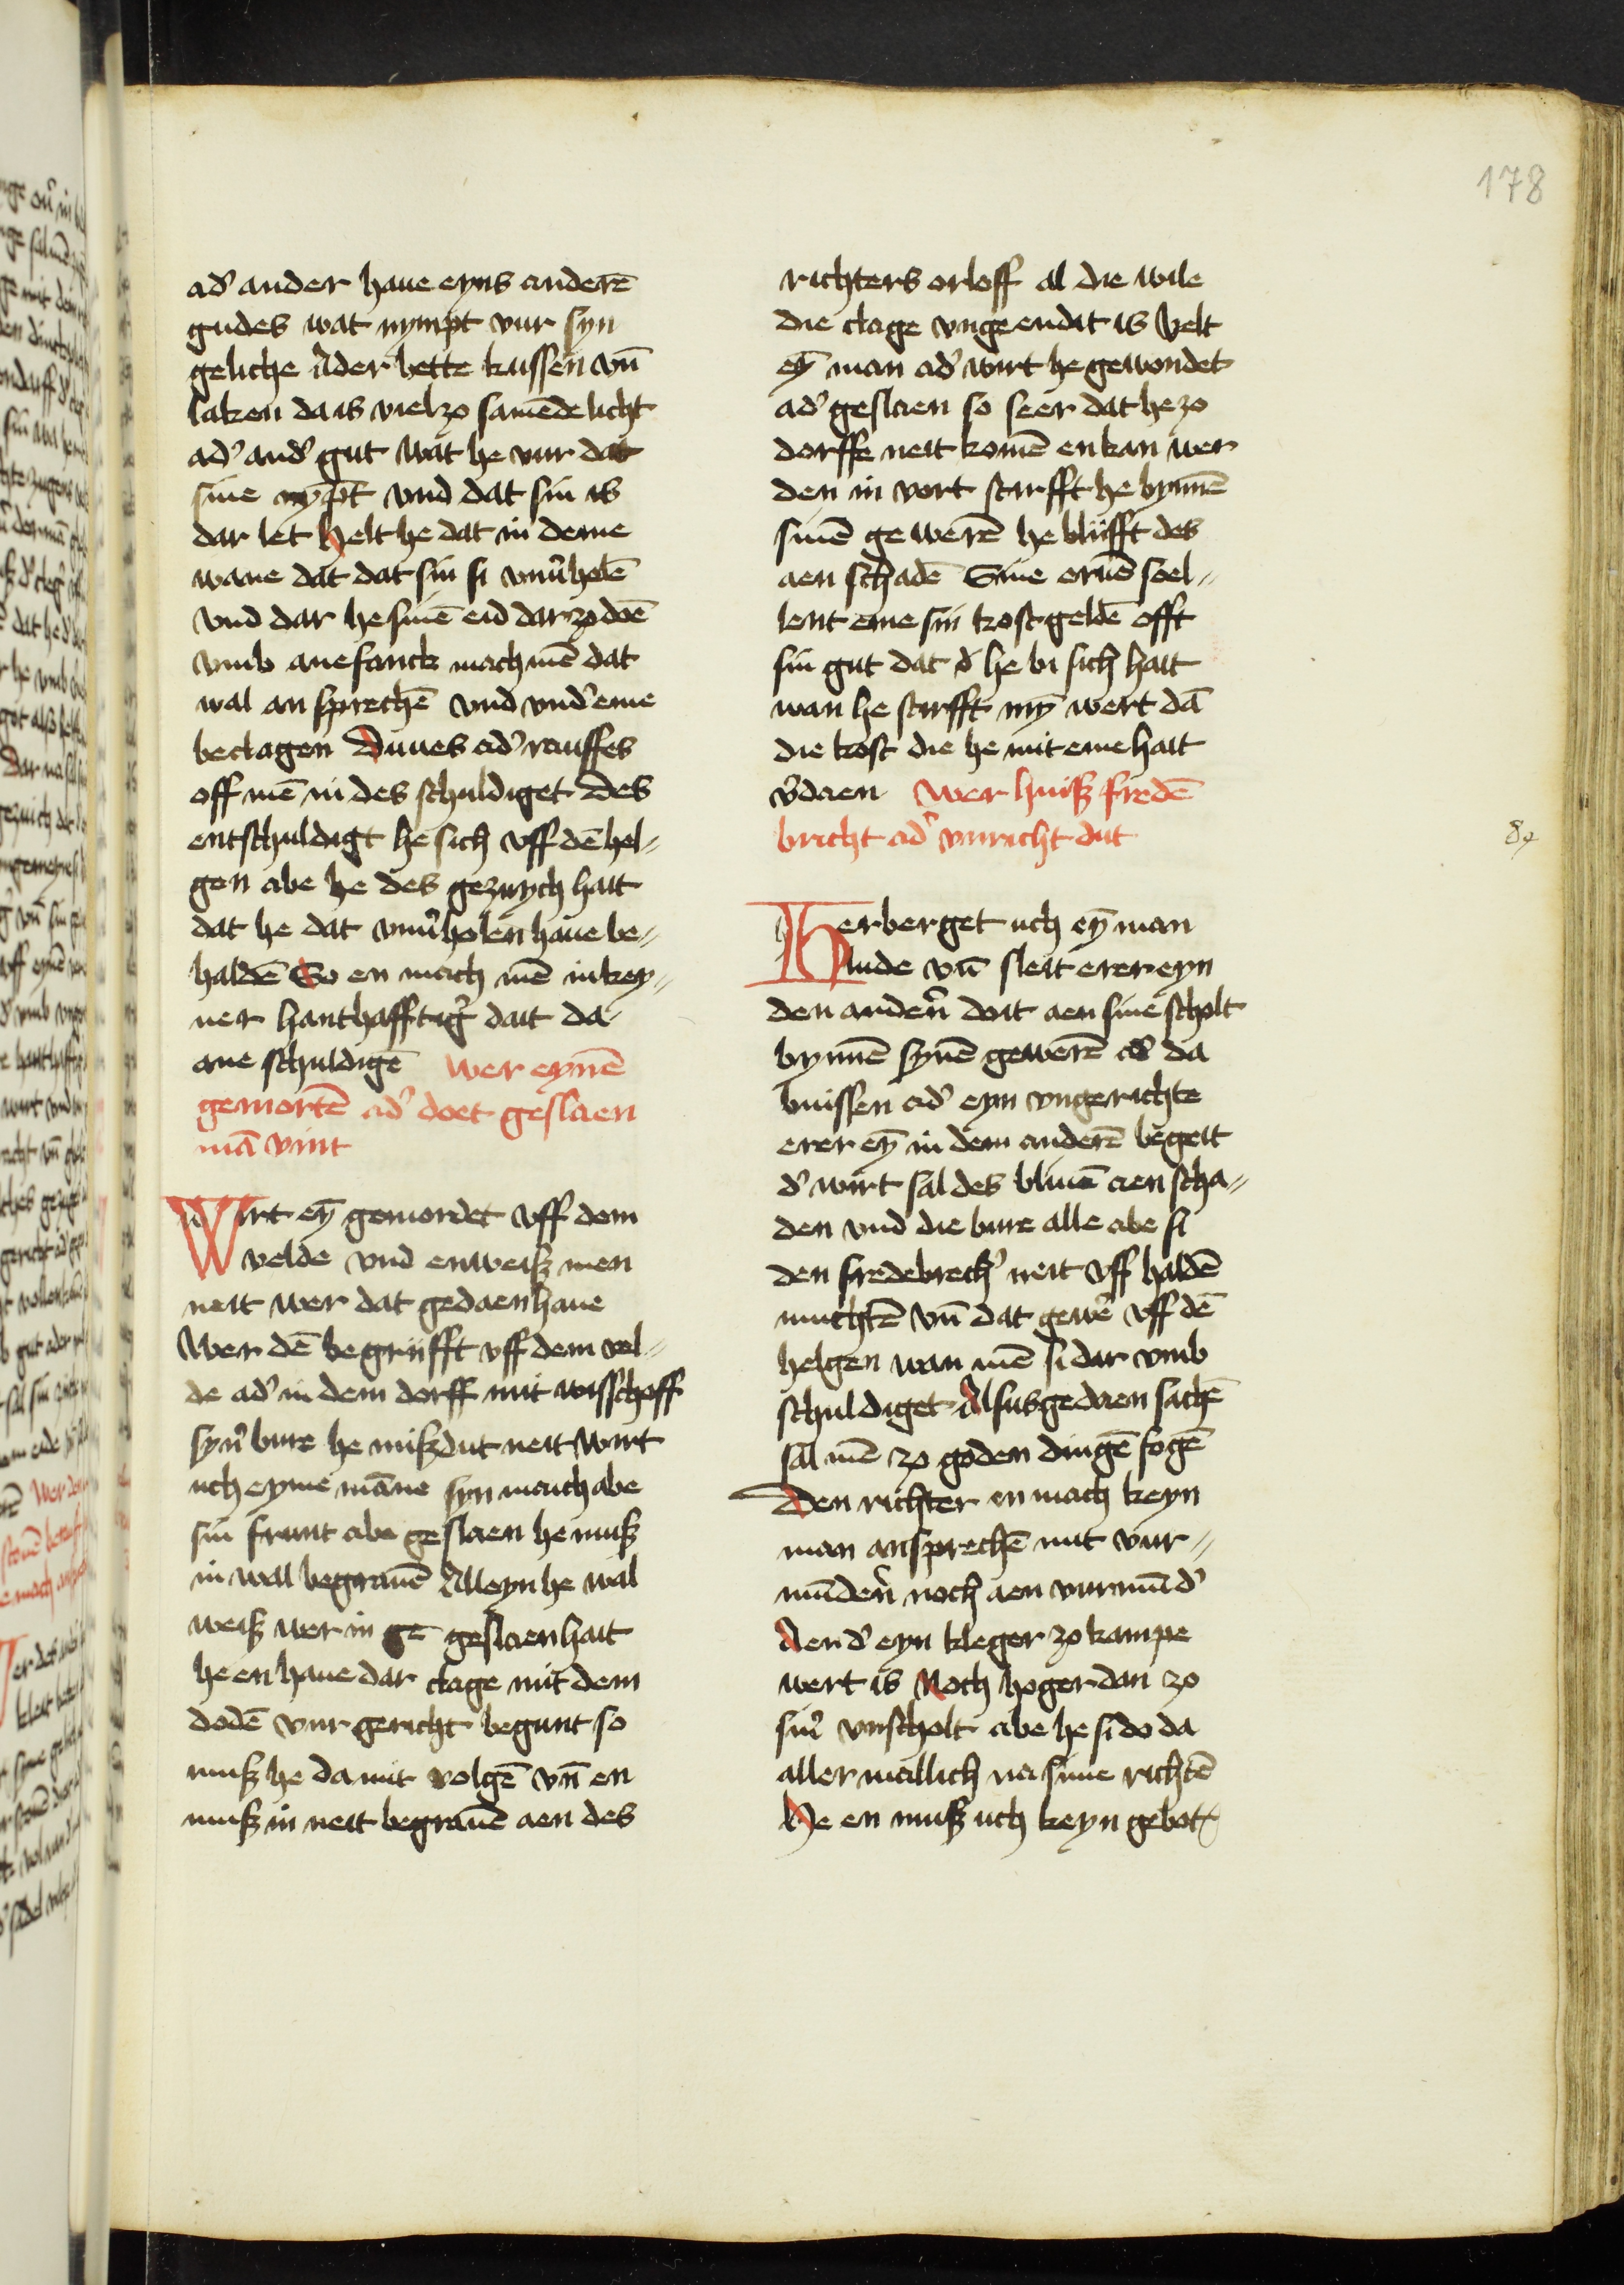 178
ad' ander haue eyns anderē
gudes wat nympt vur syn
geliche Ader bette kussen vn̄
laken da is viel zo samēde licht
ad' and' gut wat he vur dat
sine nȳpt vnd dat sin is
dar let Helt he dat in deme
wane dat dat sin si vnu'holē
vnd dar he sinē eid dar zo doē
vmb anefanck mach mē dat
wal an sprechē vnd vnd' eme
beclagen Duues ad' rauffes
off mē in des schuldiget des
entschuldigt he sich vff dē hel-
gen abe he des gezuych hait
dat he dat vnu'holen haue be-
haldē So en mach mē in key-
ner hanthafftig' dait da-
ane schuldigē wer eynē
gemortē ad' doet geslaen
mā vint
Wirt eȳ gemordet vff dem
velde vnd enweisz men
neit wer dat gedaen haue
wer dē begriifft vff dem vel-
de ad' in dem dorff mit wisschoff
syn' bure he miszdut neit wirt
uch eyme māne syn maich abe
sin frunt abe geslaen he musz
in wal begrauē Alleyn he wal
weisz wer in ge geslaen hait
he en haue dar clage mit dem
dodē vur gericht begunt so
musz he da mit volgē vn̄ en
musz in neit begrauē aen des
richters orloff al die wile
die clage vngeendit is Velt
eȳ man ad' wirt he gewondet
ad' geslaen so seer dat he zo
dorffe neit komē en kan wer
den in vort stirfft he bynnē
sinē gewerē he bliifft des
aen schadē Sine eruē soel-
lent eme sin kost geldē offt
sin gut dat d' he bi sich hait
wan he stirfft myȳ wert dā
die kost die he mit eme hait
v'daen wer huisz fredē
bricht ad' vnricht dut
84
Herberget uch eȳ man
lude vn̄ sleit erer eyn
den anden' doit aen sine scholt
bynnē synē gewerē ad' da
buissen ad' eyn vngerichte
erer eȳ in dem anderē begeit
d' wirt sal des bliuē aen scha-
den vnd die bure alle abe si
den fredebrech' neit vff haldē
muchtē vn̄ dat gewē vff dē
helgen wan mē si dar vmb
schuldiget Alsusgedaen sachē
sal mē zo goden dingē fogē
Den richter en mach keyn
man ansprechē mit vur-
mūden' noch aen vurmūd'
Aen d' eyn kleger zo kampe
wert is Noch hoger dan zo
sin' vnscholt abe he si do da
aller mallich na sime richtē
He en musz uch keyn gebot